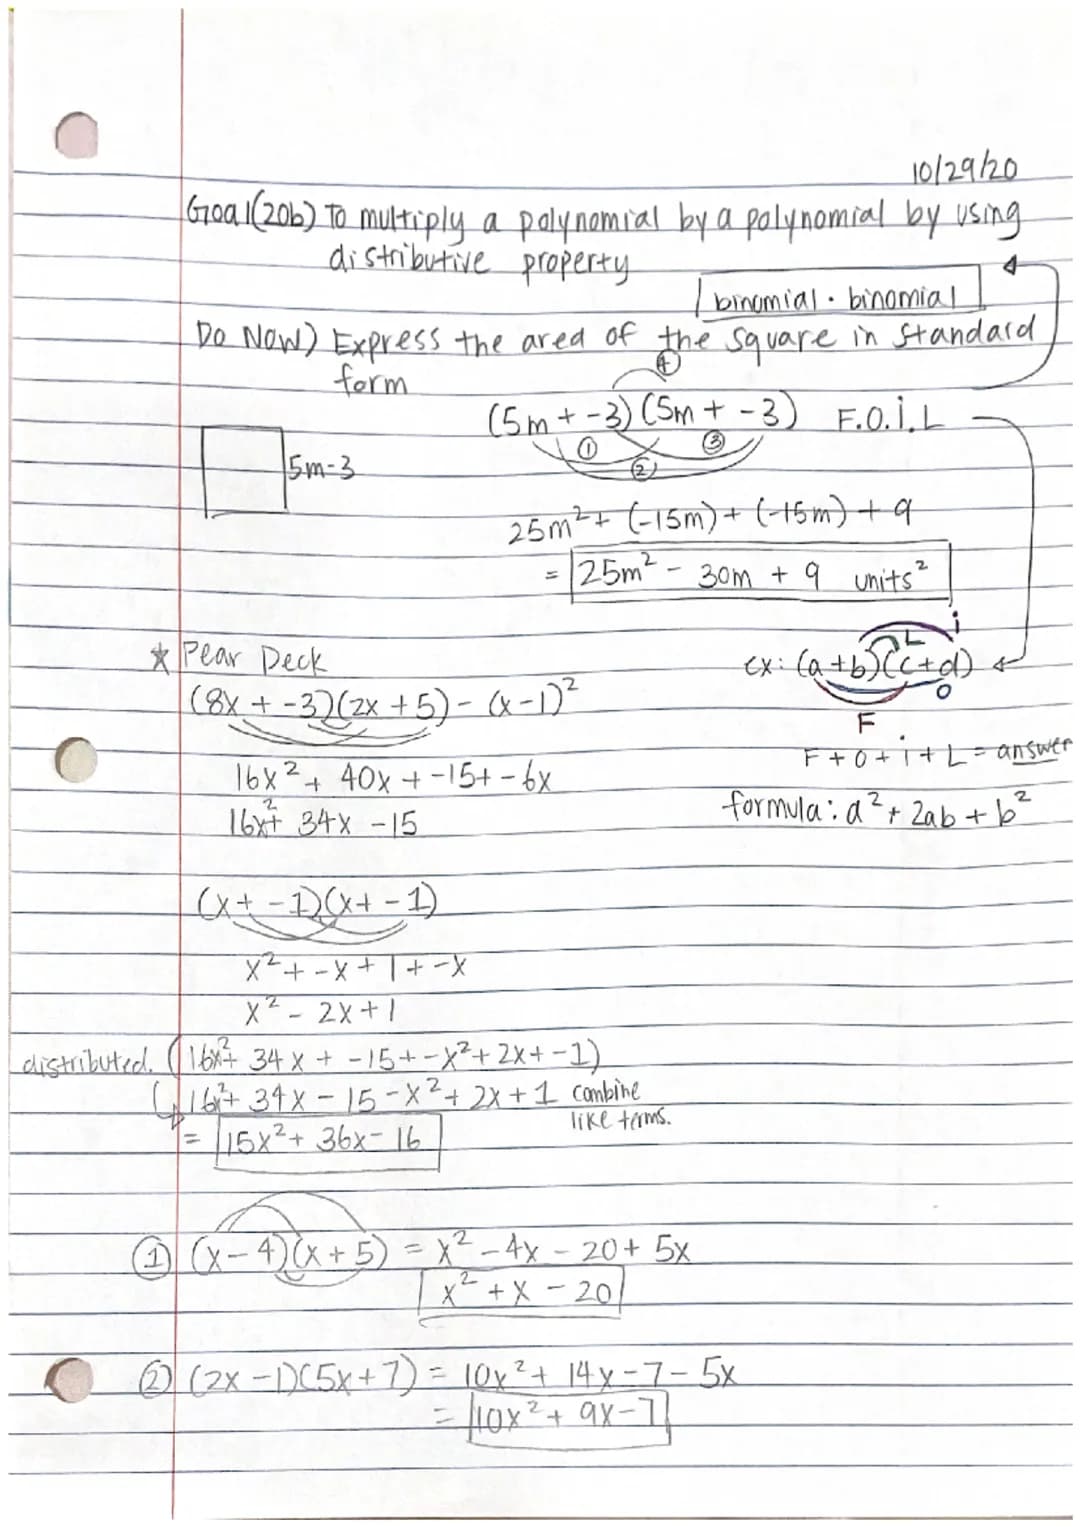 10/29/20
Goal(20b) To multiply a polynomial by a polynomial by using
distributive property
binomial · binomial
Do Now) Express the area of the square in standard
form
4
(5m + -3)(5m + -3) F.O.i.L
1 3
2
5m-3
25m² + (-15m) + (-15m) + 9
= 25m² - 30m + 9 units²
★ Pear Deck
(8x + -3)(2x + 5) - (x-1)²
16x² + 40x + -15 + -6x
16x² + 34x - 15
i
L
ex: (a+b)(c+d)
O
F
F + O + i + L = answer
formula: a² + 2ab + b²
(x + -1)(x + -1)
x² + -x + 1 + -x
x² - 2x + 1
distributed. (16x² + 34x + -15 + -x² + 2x + -1)
16x² + 34x - 15 - x² + 2x + 1 combine
like terms.
= 15x² + 36x - 16
① (x-4)(x+5) = x² - 4x - 20 + 5x
x² + x - 20
② (2x-1)(5x+7) = 10x² + 14x - 7 - 5x
= 10x² + 9x - 7